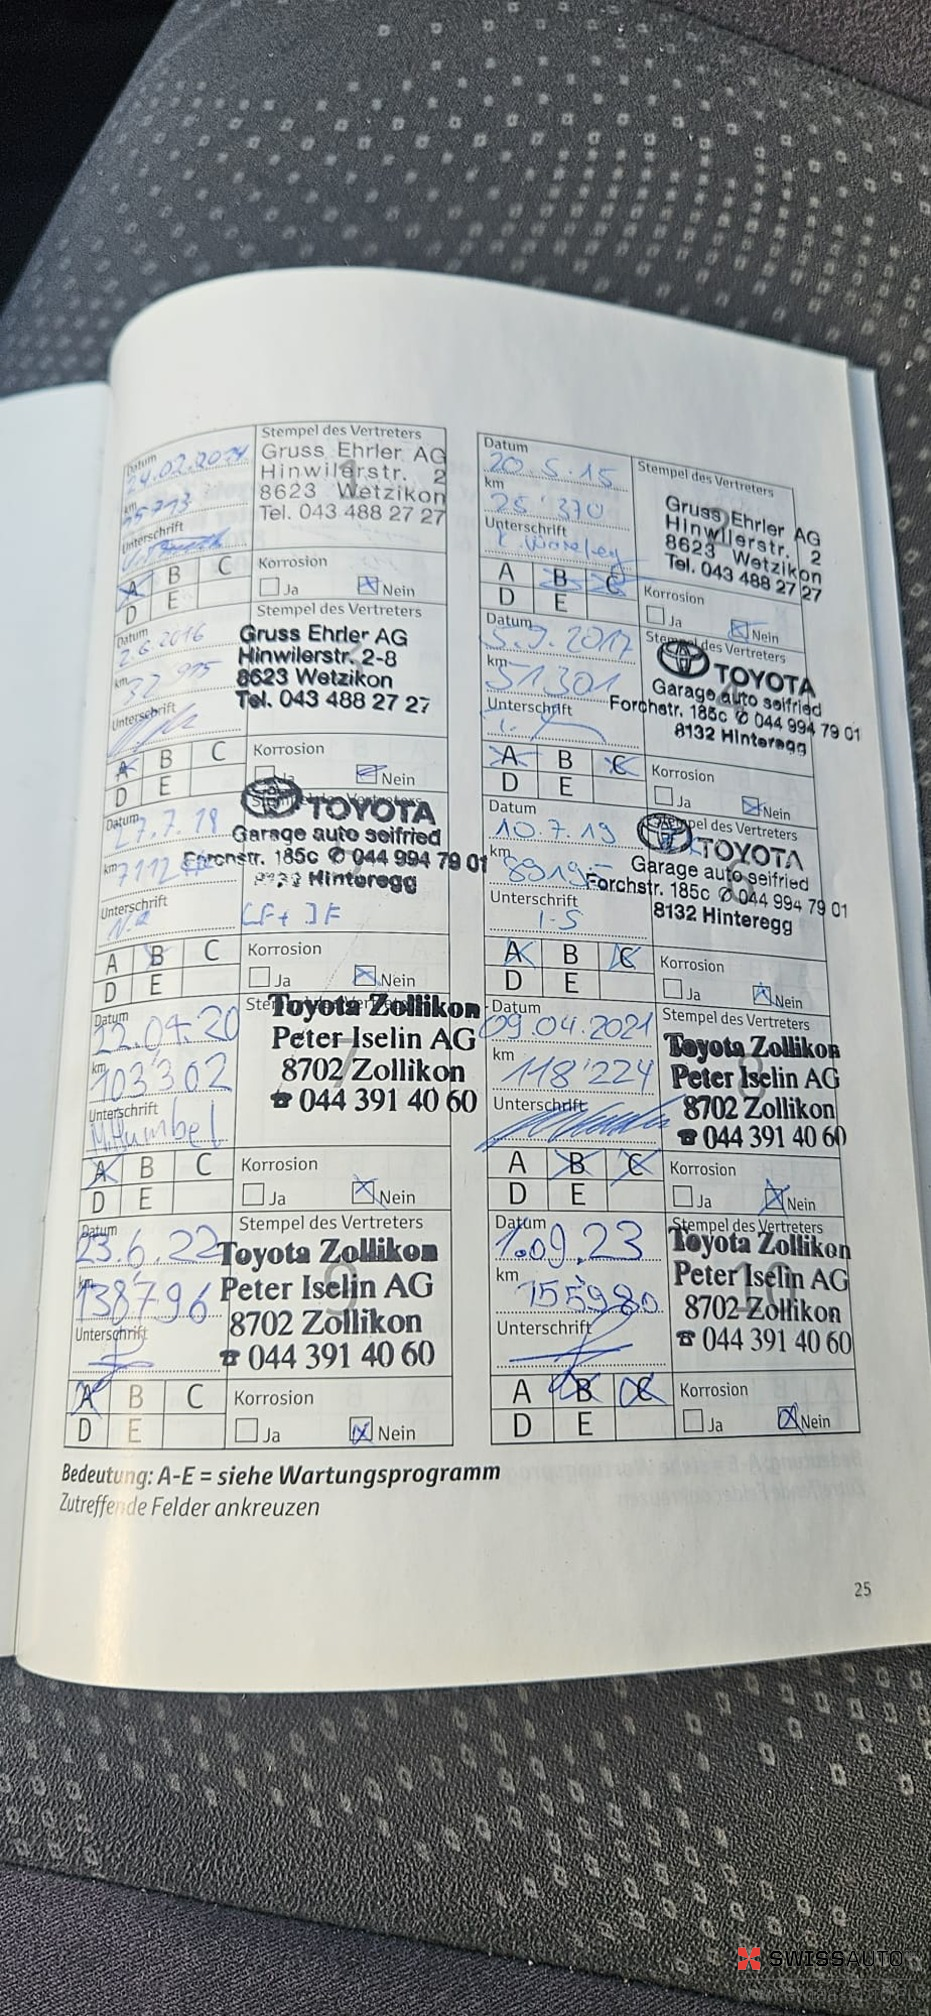 Datum
24.02.2014
km
15713
Unterschrift
Stempel des Vertreters
Gruss Ehrler AG
Hinwilerstr. 2
8623 Wetzikon
Tel. 043 488 27 27
A B C
D E
Korrosion
Ja Nein
Datum
20.5.15
km
25'370
Unterschrift
Stempel des Vertreters
Gruss Ehrler AG
Hinwilerstr. 2
8623 Wetzikon
Tel. 043 488 27 27
A B C
D E
Korrosion
Ja Nein
Datum
2.6.2016
km
32 975
Unterschrift
Stempel des Vertreters
Gruss Ehrler AG
Hinwilerstr. 2-8
8623 Wetzikon
Tel. 043 488 27 27
A B C
D E
Korrosion
Ja Nein
Datum
5.9.2017
km
51301
Unterschrift
Stempel des Vertreters
TOYOTA
Garage auto seifried
Forchstr. 185c ✆ 044 994 79 01
8132 Hinteregg
A B C
D E
Korrosion
Ja Nein
Datum
27.7.18
km
Unterschrift
Stempel des Vertreters
TOYOTA
Garage auto seifried
Forchstr. 185c ✆ 044 994 79 01
8132 Hinteregg
A B C
D E
Korrosion
Ja Nein
Datum
10.7.19
km
Unterschrift
Stempel des Vertreters
TOYOTA
Garage auto seifried
Forchstr. 185c ✆ 044 994 79 01
8132 Hinteregg
A B C
D E
Korrosion
Ja Nein
Datum
22.04.20
km
103'302
Unterschrift
M.Humbel
Stempel des Vertreters
Toyota Zollikon
Peter Iselin AG
8702 Zollikon
☎ 044 391 40 60
A B C
D E
Korrosion
Ja Nein
Datum
09.04.2021
km
118'224
Unterschrift
Stempel des Vertreters
Toyota Zollikon
Peter Iselin AG
8702 Zollikon
☎ 044 391 40 60
A B C
D E
Korrosion
Ja Nein
Datum
23.6.22
km
138796
Unterschrift
Stempel des Vertreters
Toyota Zollikon
Peter Iselin AG
8702 Zollikon
☎ 044 391 40 60
A B C
D E
Korrosion
Ja Nein
Datum
1.09.23
km
155'980
Unterschrift
Stempel des Vertreters
Toyota Zollikon
Peter Iselin AG
8702 Zollikon
☎ 044 391 40 60
A B C
D E
Korrosion
Ja Nein
Bedeutung: A-E = siehe Wartungsprogramm
Zutreffende Felder ankreuzen
25
SWISSAUTO